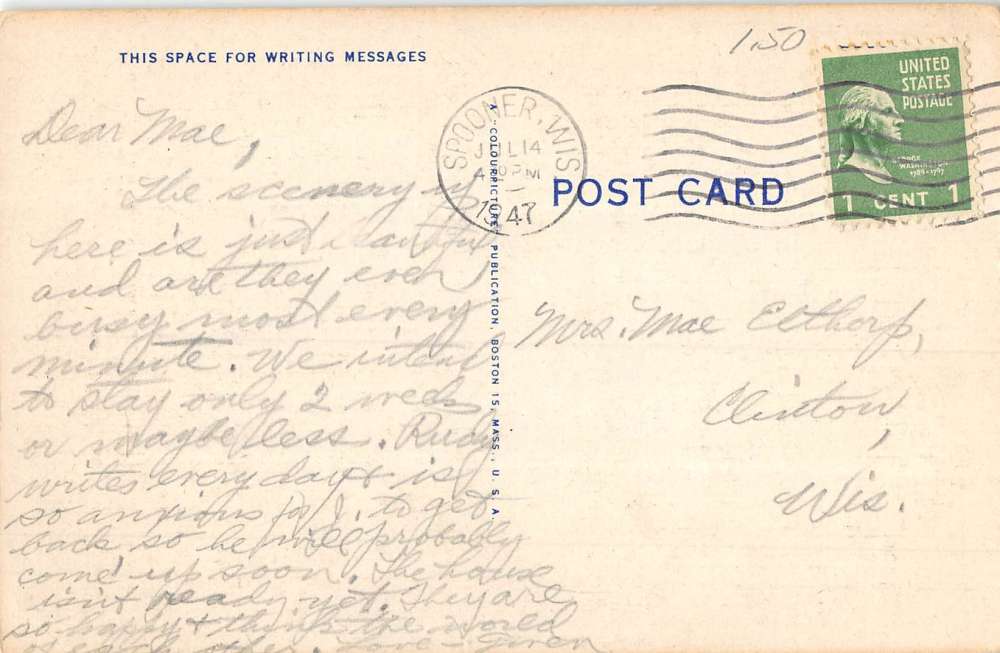 THIS SPACE FOR WRITING MESSAGES
1.50
UNITED
STATES
POSTAGE
GEORGE
WASHINGTON
1789-1797
1 CENT 1
SPOONER, WIS.
JUL 14
4 PM
1947
POST CARD
"COLOURPICTURE" PUBLICATION, BOSTON 15, MASS., U.S.A.
Dear Mae,
The scenery up
here is just beautiful
and are they ever
busy most every
minute. We intend
to stay only 2 weeks
or maybe less. Rudy
writes every day & is
so anxious for J. to get
back so he will probably
come up soon. The house
isn't ready yet. They are
so happy & think the world
of each other. Love -
Mrs. Mae Elthorp,
Clinton,
Wis.